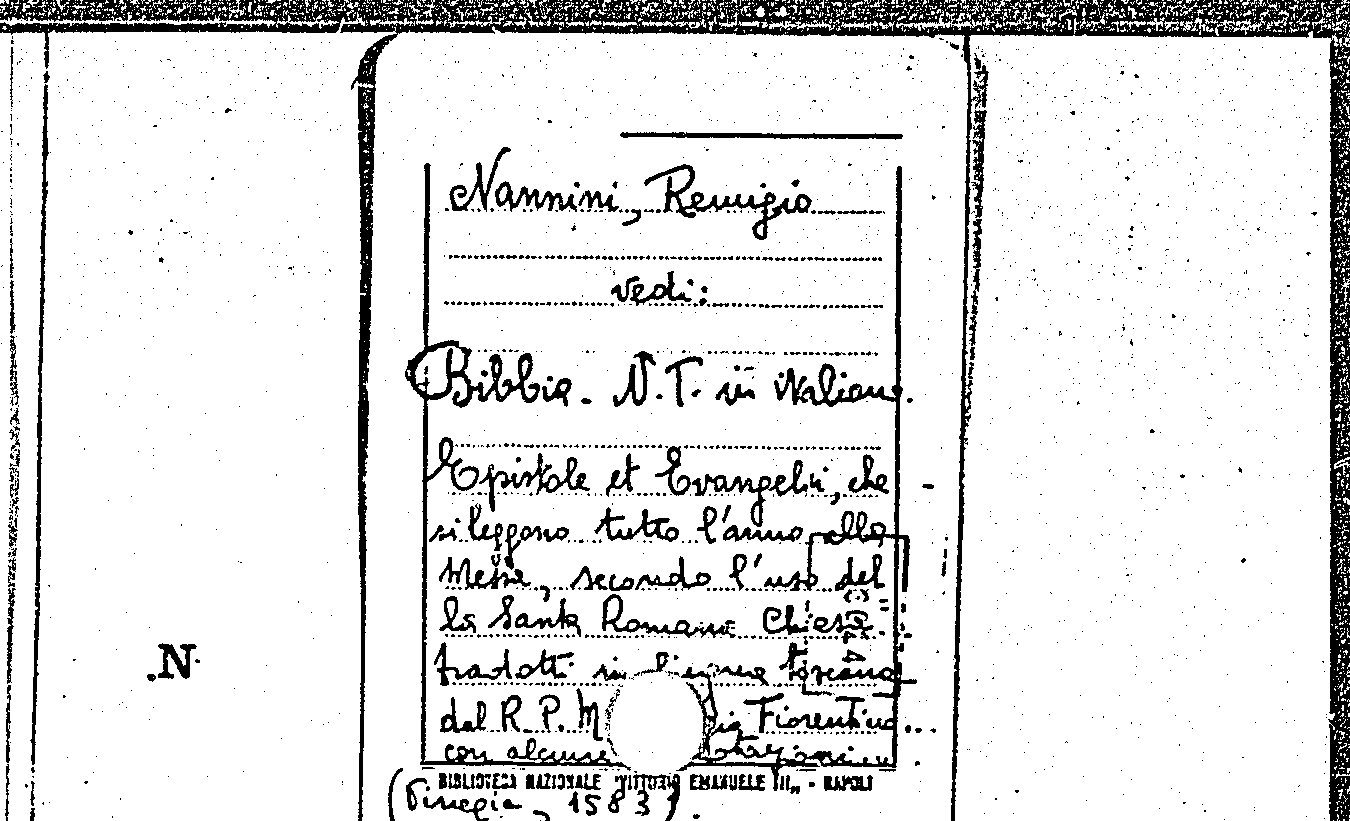 Nannini, Remigio
vedi:
Bibbia. N.T. in italiano.
Epistole et Evangelii, che
si leggono tutto l'anno alla
Messe, secondo l'uso del
la Santa Romana Chiesa
tradotti in lingua toscana
dal R. P. M Fiorentino...
con alcune
BIBLIOTECA NAZIONALE "VITTORIO EMANUELE III" - NAPOLI
(Vinegia, 1583)
.N.